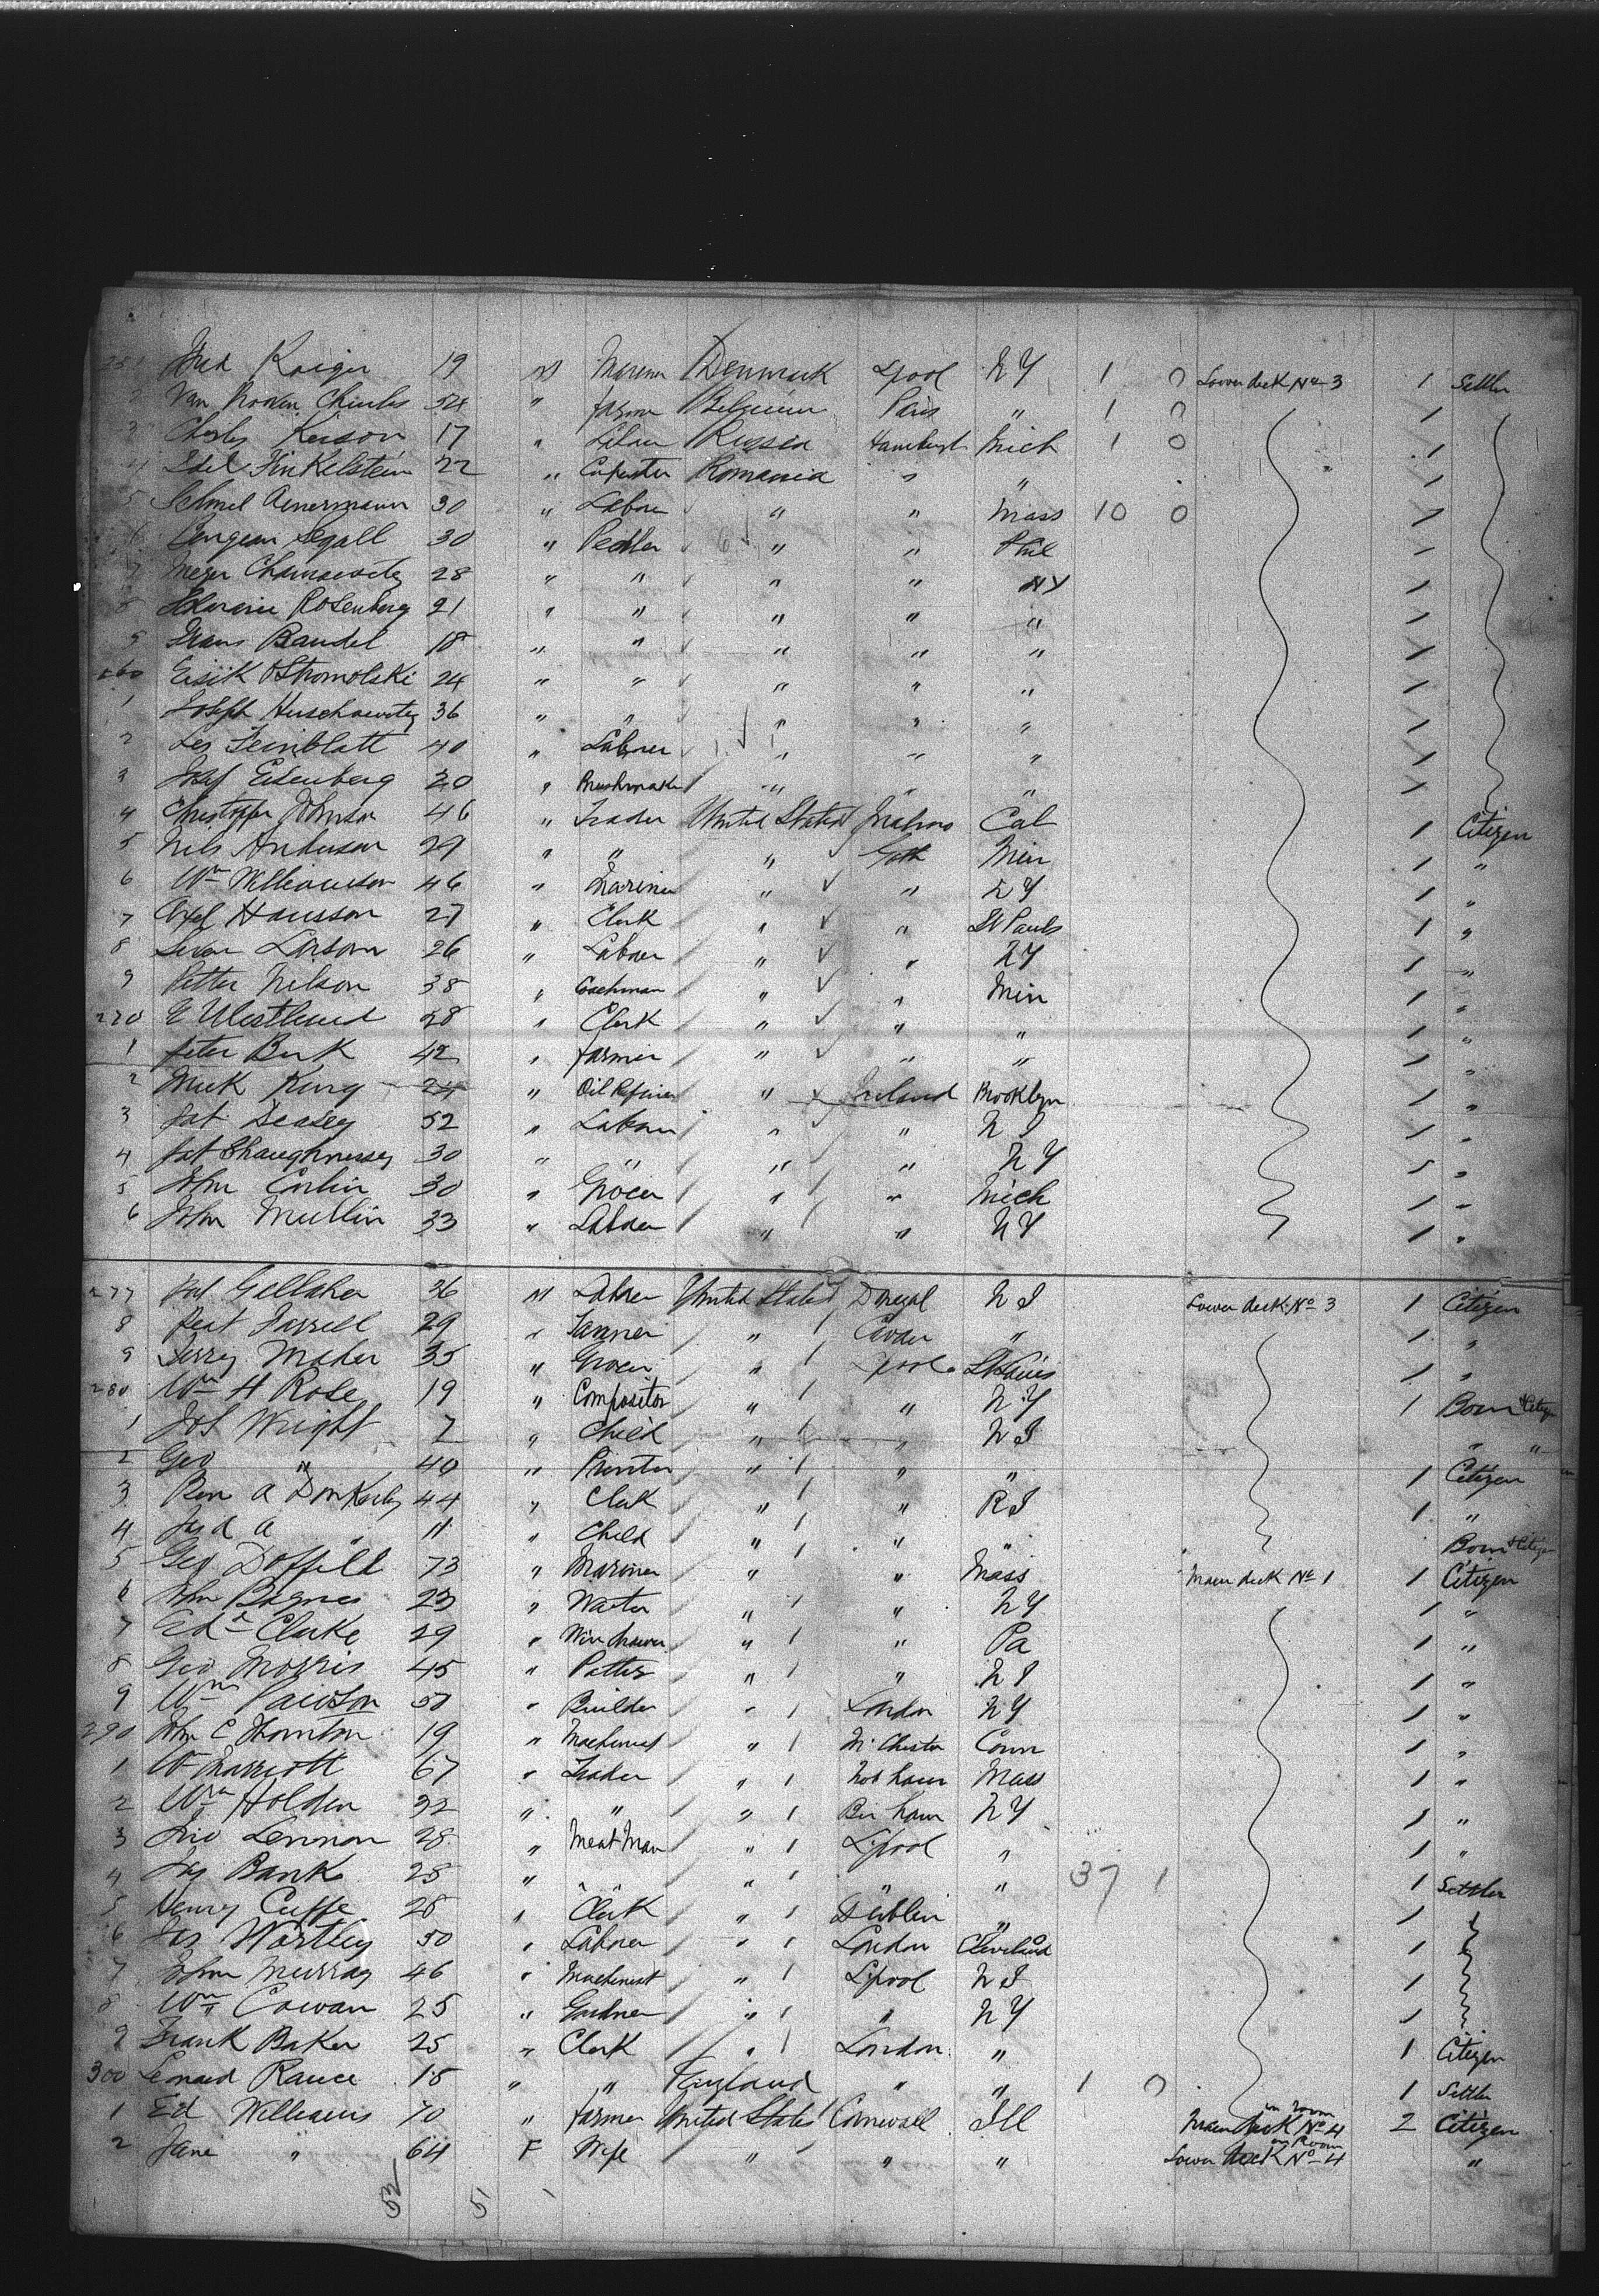 251 Kaiger 19 M Mariner Denmark Lpool N Y 1 0 Lower deck No 3 1 Settler
2 Van Charles 54 " Farmer Belgium Paris " 1 0 1
3 Charly Keison 17 " Labour Russia Hamburg Mich 1 0 1
4 Idel Finkelstein 22 " Carpenter Romania " " 1
5 30 " Labour " " Mass 10 0 1
6 Segall 30 " Pedler " " Phil 1
7 Meyer 28 " " " " N Y 1
8 Rosenberg 21 " " " " " 1
9 Bandel 18 " " " " " 1
260 Eisik Ostromolski 24 " " " " " 1
1 Joseph 36 " " " " " 1
2 Les Feinblatt 40 " Labour " " " 1
3 Josef Eisenberg 20 " Brushmaker " " " 1
4 Johnson 46 " Trader United States Cal 1 Citizen
5 Nils Anderson 29 " " " Goth Min 1 "
6 Wm Williamson 46 " Mariner " " N Y 1 "
7 Axel Hansson 27 " Clerk " " St Pauls 1 "
8 Larson 26 " Labour " " N Y 1 "
9 Petter Nilson 38 " Coachman " " Min 1 "
270 E Westlund 28 " Clerk " " " 1 "
1 Peter Berk 42 " Farmer " " " 1 "
2 King 24 " Oil Refiner " Ireland Brooklyn 1 "
3 Pat Deasey 52 " Labour " " N J 1 "
4 Pat Shaughnessey 30 " " " " N Y 1 "
5 John Corbin 30 " Grocer " " Mich 1 "
6 John Mullin 33 " Labour " " N Y 1 "
277 Pat Gallaher 36 M Labour United States Donegal N J Lower deck No 3 1 Citizen
8 Pat Farrell 29 " Tanner " Cavan " 1 "
9 Terry Maher 35 " Grocer " Lpool St Louis 1 "
280 Wm H Rose 19 " Compositor " " N Y 1 Born Citizen
1 Jos Wright 7 " Child " " N J " "
2 Geo " 40 " Printer " " " 1 Citizen
3 Ben A Donkerly 44 " Clerk " " R I 1 "
4 A " 11 " Child " " " Born Citizen
5 Geo Doffill 73 " Mariner " " Mass Main deck No 1 1 Citizen
6 John Bagnes 23 " Waiter " " N Y 1 "
7 Edd Clarke 29 " Wire drawer " " Pa 1 "
8 Geo Morris 45 " Potter " " N J 1 "
9 Wm Pawson 50 " Builder " London N Y 1 "
290 John C Thornton 19 " Machinist " M'Chester Conn 1 "
1 Wm Marriott 67 " Trader " Not ham Mass 1 "
2 Wm Holden 32 " " " Bir ham N Y 1 "
3 Jno Lennon 28 " Meat Man " Lpool " 1 "
4 Jas Banks 25 " " " " " 37 1 1 Settler
5 Henry Cuffe 28 " Clerk " Dublin " 1
6 Jas Wortley 50 " Labour " London Cleveland 1
7 John Murray 46 " Machinist " Lpool N J 1
8 Wm Cowan 25 " Gardner " " N Y 1
9 Frank Baker 25 " Clerk " London " 1 Citizen
300 Leonard Rance 18 " " England " " 1 0 1 Settler
1 Ed Williams 70 " Farmer United States Cornwall Ill Main deck No 4 in room 2 Citizen
2 Jane " 64 F Wife " " " Lower deck No 4 in Room "
52 51